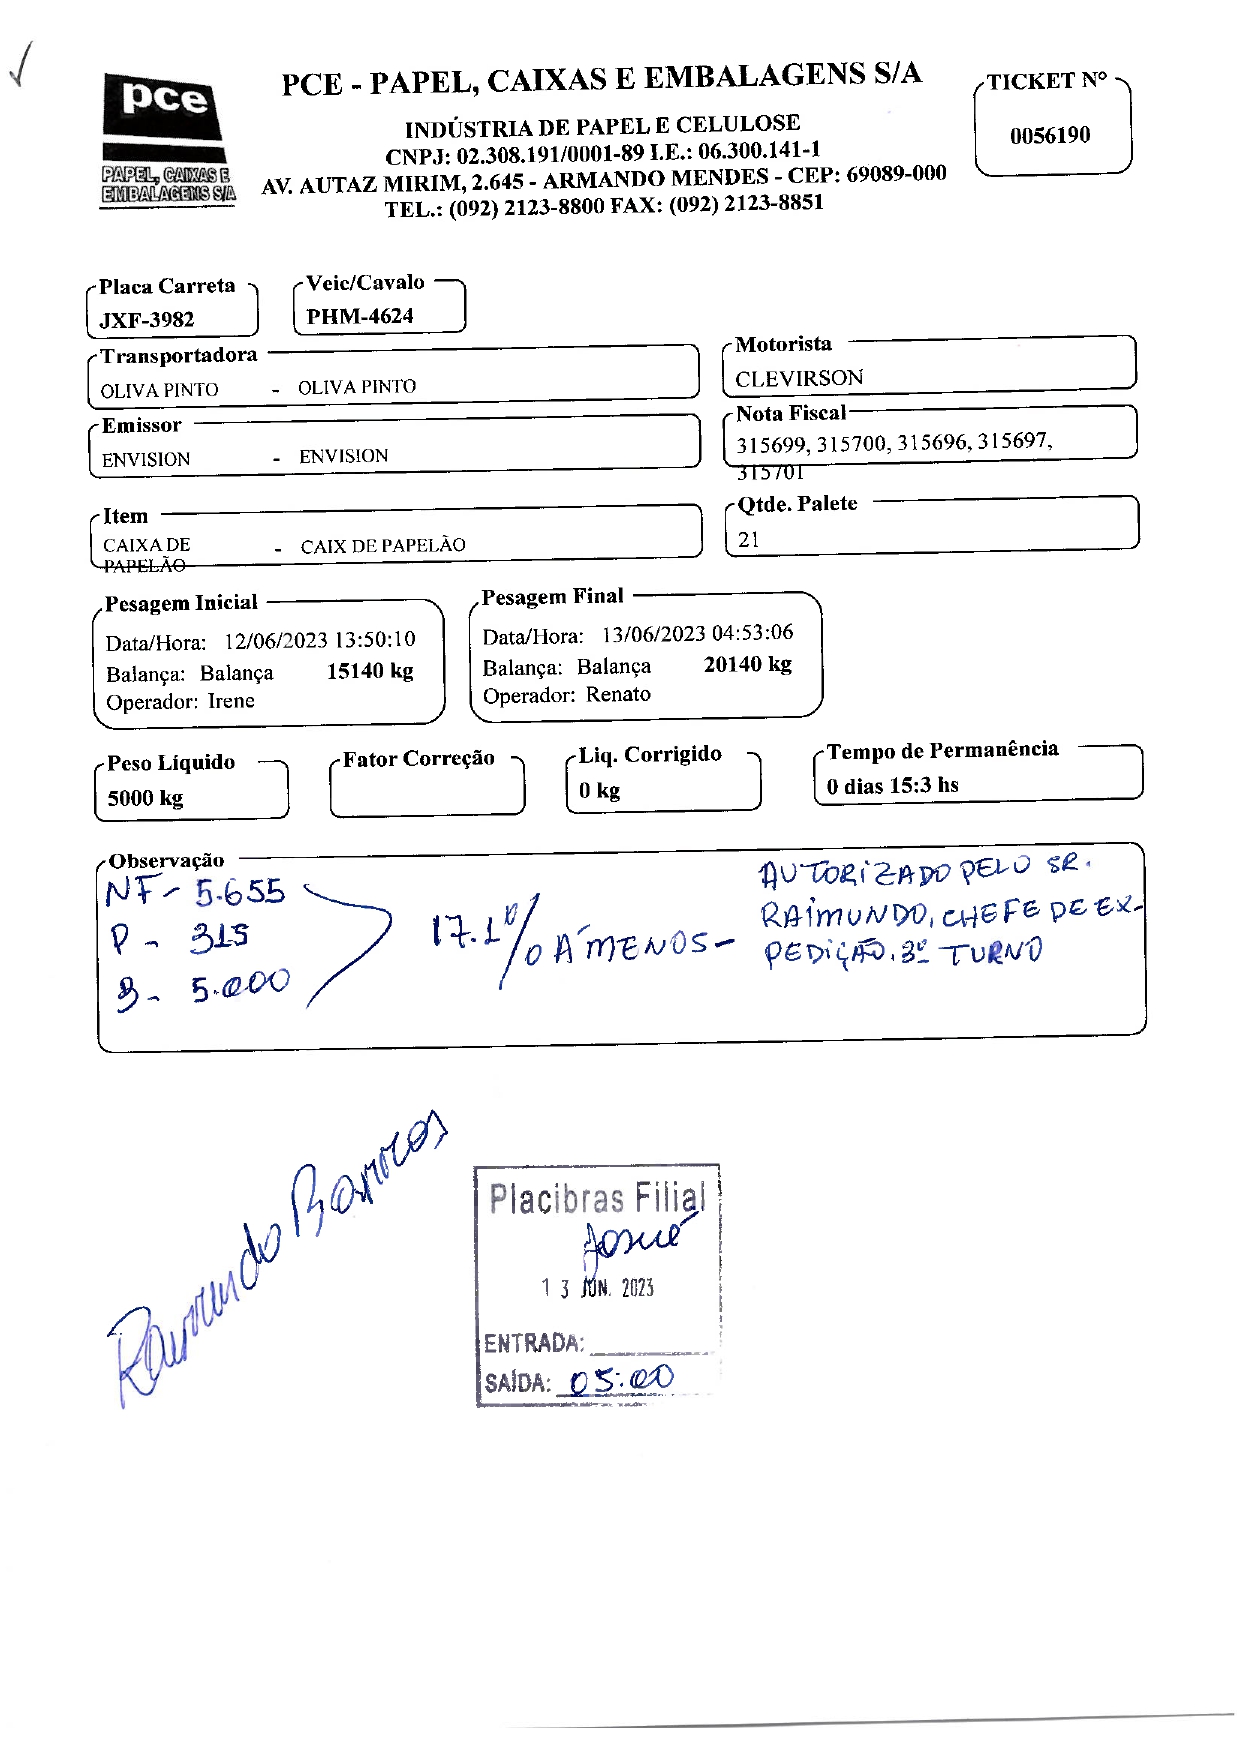 pce
PAPEL, CAIXAS E
EMBALAGENS S/A
PCE - PAPEL, CAIXAS E EMBALAGENS S/A
INDÚSTRIA DE PAPEL E CELULOSE
CNPJ: 02.308.191/0001-89 I.E.: 06.300.141-1
AV. AUTAZ MIRIM, 2.645 - ARMANDO MENDES - CEP: 69089-000
TEL.: (092) 2123-8800 FAX: (092) 2123-8851
TICKET Nº
0056190
Placa Carreta
JXF-3982
Veic/Cavalo
PHM-4624
Transportadora
OLIVA PINTO - OLIVA PINTO
Motorista
CLEVIRSON
Emissor
ENVISION - ENVISION
Nota Fiscal
315699, 315700, 315696, 315697,
315701
Item
CAIXA DE - CAIX DE PAPELÃO
PAPELÃO
Qtde. Palete
21
Pesagem Inicial
Data/Hora: 12/06/2023 13:50:10
Balança: Balança 15140 kg
Operador: Irene
Pesagem Final
Data/Hora: 13/06/2023 04:53:06
Balança: Balança 20140 kg
Operador: Renato
Peso Líquido
5000 kg
Fator Correção
Liq. Corrigido
0 kg
Tempo de Permanência
0 dias 15:3 hs
Observação
NF - 5.655
P - 315
B - 5.000
17.1% A MENOS -
AUTORIZADO PELO SR.
RAIMUNDO, CHEFE DE EX-
PEDIÇÃO. 3º TURNO
Raimundo Barros
Placibras Filial
Josué
13 JUN. 2023
ENTRADA:
SAÍDA: 05:00